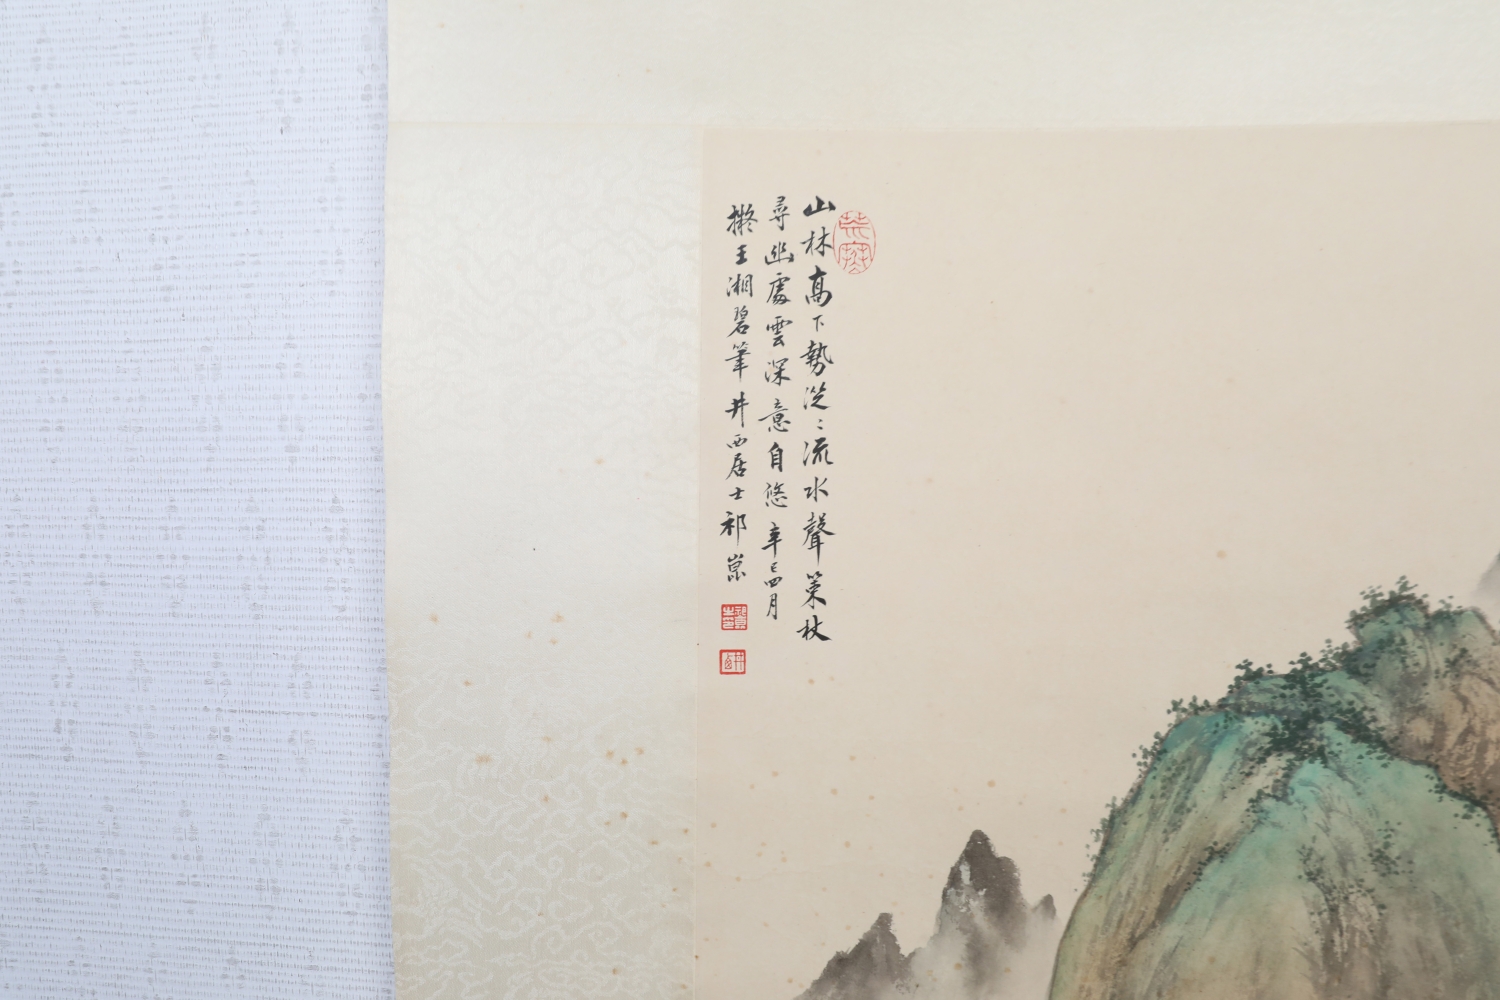 山林高下勢淙〻流水聲策杖
尋幽處雲深意自悠辛巳四月
擬王湘碧筆井西居士祁崑